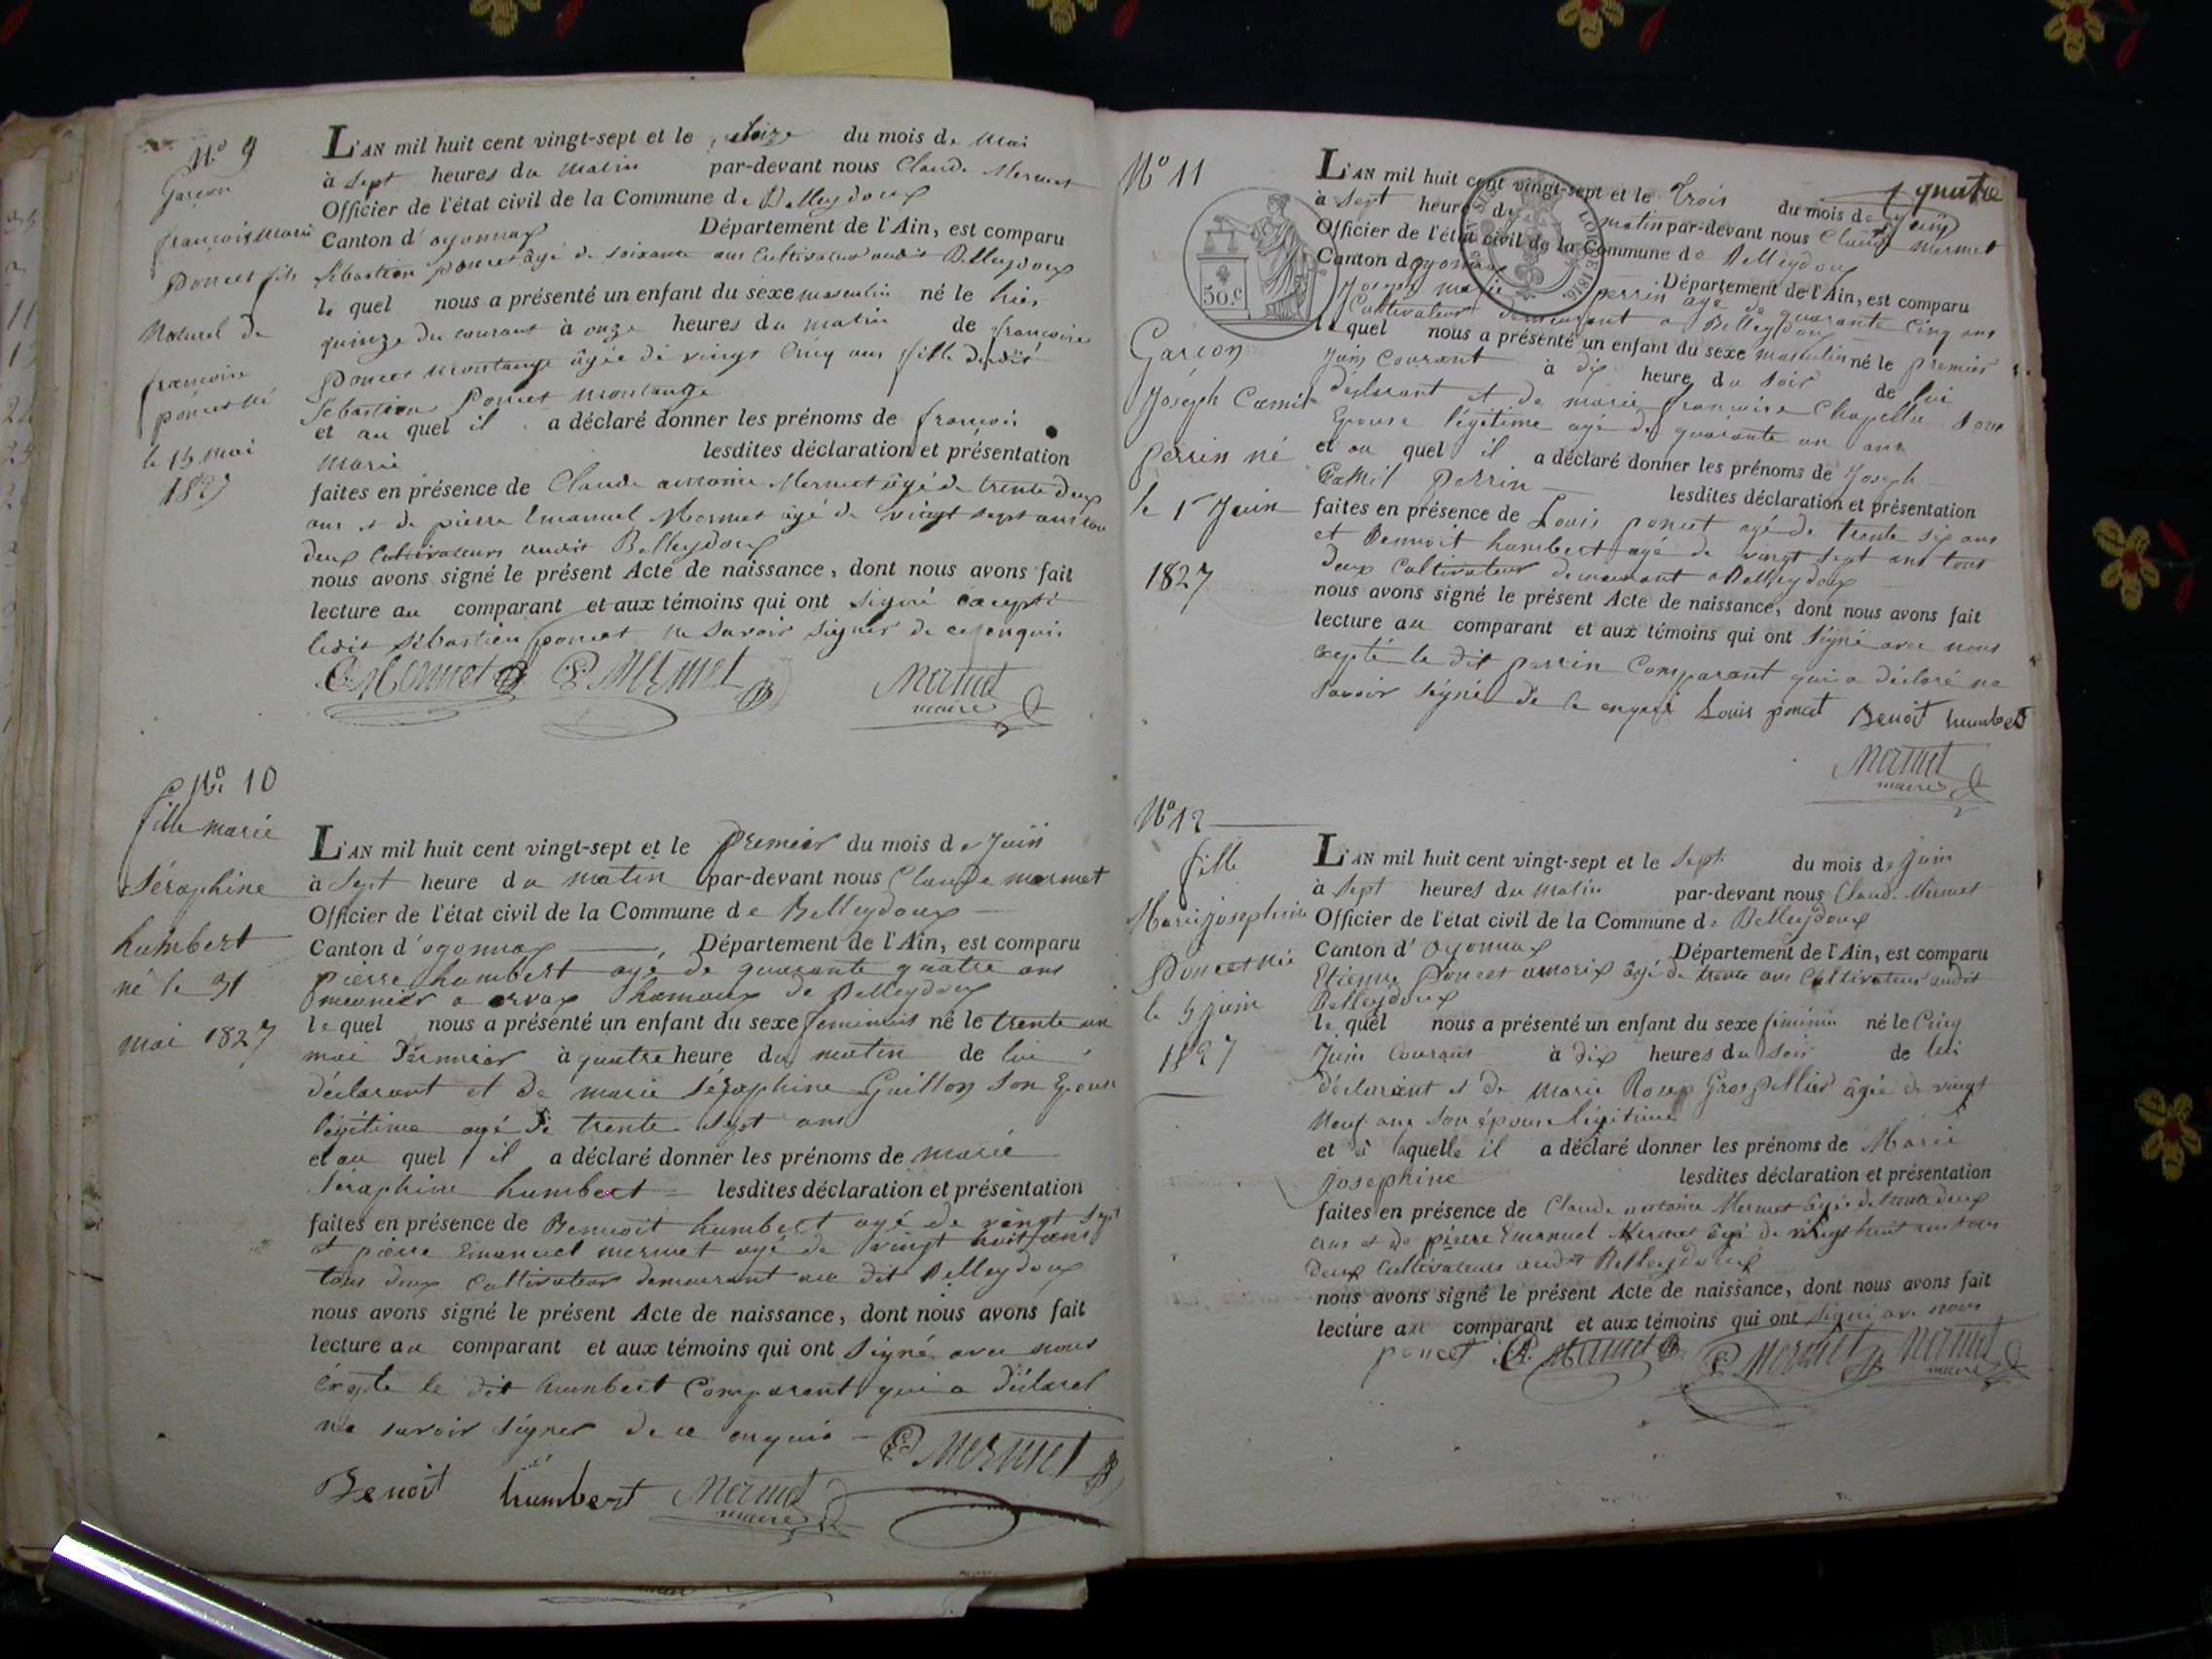 N.o 9
Garçon
françois marie
Poncet fils
Naturel de
françoise
poncet né
le 15 mai
1827
L'AN mil huit cent vingt-sept et le seize du mois de Mai
à Sept heures du Matin par-devant nous Claude Mermet
Officier de l'état civil de la Commune de Belleydoux
Canton d'oyonnax Département de l'Ain, est comparu
Sébastien poncet âgé de soixante ans Cultivateur audit Belleydoux
le quel nous a présenté un enfant du sexe masculin né le hier
quinze du courant à onze heures du matin de françoise
Poncet Montange âgée de vingt Cinq ans fille dudit
Sébastien Poncet Montange
et au quel il a déclaré donner les prénoms de françois
Marie lesdites déclaration et présentation
faites en présence de Claude antoine Mermet âgé de trente deux
ans et de pierre Emanuel Mermet âgé de vingt sept ans tou
deux Cultivateurs audit Belleydoux
nous avons signé le présent Acte de naissance, dont nous avons fait
lecture au comparant et aux témoins qui ont signé excepté
ledit Sébastien poncet ne savoir signer de ce enquis
C Mermet P Mermet Mermet
maire
N.o 10
fille marie
Séraphine
humbert
né le 31
mai 1827
L'AN mil huit cent vingt-sept et le Premier du mois de Juin
à Sept heure du matin par-devant nous Claude mermet
Officier de l'état civil de la Commune de Belleydoux
Canton d'ogonnax Département de l'Ain, est comparu
pierre humbert agé de quarante quatre ans
meunier a orvax hamaux de Belleydoux
le quel nous a présenté un enfant du sexe feminins né le trente un
mai Dernnier à quatre heure du matin de lui
déclarant et de marie Séraphine Guillon son Epouse
légitime agé de trente sept ans
et au quel il a déclaré donner les prénoms de marie
Séraphine humbert lesdites déclaration et présentation
faites en présence de Bennoit humbert agé de vingt sept
et pierre Emanuel mermet agé de vingt huit ans
tous deux Cultivateur demeurant au dit Belleydoux
nous avons signé le présent Acte de naissance, dont nous avons fait
lecture au comparant et aux témoins qui ont Signé avec nous
éxepte le dit humbert Comparant qui a déclarel
ne savoir signer de ce enquis P Mermet
Benoit humbert Mermet
maire
quatre
N.o 11
50.c
Garcon
Joseph Camil
Perrin né
le 1r Juin
1827
L'AN mil huit cent vingt-sept et le trois du mois de juin
à Sept heure du matin par-devant nous Claude Mermet
Officier de l'état civil de la Commune de Belleydoux
Canton doyonnax Département de l'Ain, est comparu
Joseph marie perrin agé de quarante Cinq ans
Cultivateur demeurant a Belleydoux
le quel nous a présenté un enfant du sexe masculin né le premier
Juin Courant à dix heure du soir de lui
déclarant et de marie françoise Chapellu Sone
Epouse légitime agé de quarante un ans
et au quel il a déclaré donner les prénoms de Joseph
Camil Perrin lesdites déclaration et présentation
faites en présence de Louis poncet agé de trente six ans
et Bennoit humbert agé de vingt sept ans tous
deux Cultivateur demeurant a Belleydoux
nous avons signé le présent Acte de naissance, dont nous avons fait
lecture au comparant et aux témoins qui ont Signé avec nous
exepté le dit perrin Comparant qui a déclaré ne
savoir signé de ce enquis Louis poncet Benoit humbert
Mermet
maire
N.o 12
fille
Marie josephine
Poncet née
le 5 juin
1827
L'AN mil huit cent vingt-sept et le Sept du mois de juin
à Sept heures du Matin par-devant nous Claude Mermet
Officier de l'état civil de la Commune de Belleydoux
Canton d'Oyonnax Département de l'Ain, est comparu
Etienne Poncet amorix âgé de trente ans Cultivateur audit
Belleydoux
le quel nous a présenté un enfant du sexe féminin né le Cinq
Juin Courant à dix heures du Soir de lui
déclarant et de Marie Rose Grospellier âgée de vingt
Neuf ans son épouse légitime
et à laquelle il a déclaré donner les prénoms de Marie
josephine lesdites déclaration et présentation
faites en présence de Claude antoine Mermet âgé de trente deux
ans et de pierre Emanuel Mermet âgé de vingt huit ans tous
deux Cultivateurs audit Belleydoux
nous avons signé le présent Acte de naissance, dont nous avons fait
lecture au comparant et aux témoins qui ont signé avec nous
poncet C. Mermet P Mermet Mermet
maire